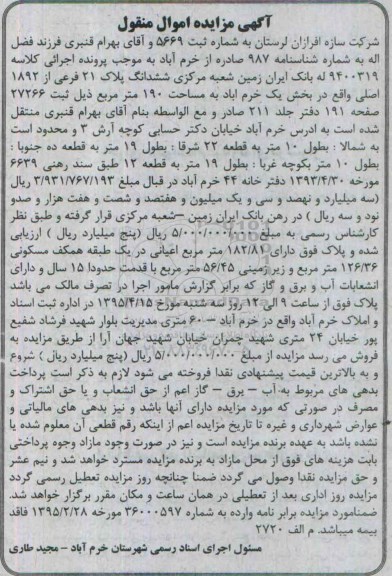 آگهی مزایده اموال منقول
شرکت سازه افرازان لرستان به شماره ثبت ۵۶۶۹ و آقای بهرام قنبری فرزند فضل
اله به شماره شناسنامه ۹۸۷ صادره از خرم آباد به موجب پرونده اجرائی کلاسه
۹۴۰۰۳۱۹ له بانک ایران زمین شعبه مرکزی ششدانگ پلاک ۲۱ فرعی از ۱۸۹۲
اصلی واقع در بخش یک خرم اباد به مساحت ۱۹۰ متر مربع ذیل ثبت ۲۷۲۶۶
صفحه ۱۹۱ دفتر جلد ۲۱۱ صادر و مع الواسطه بنام آقای بهرام قنبری منتقل
شده است به ادرس خرم آباد خیابان دکتر حسابی کوچه آرش ۳ و محدود است
به شمالا : بطول ۱۰ متر به قطعه ۲۲ شرقا : بطول ۱۹ متر به قطعه ده جنوبا :
بطول ۱۰ متر بکوچه غربا : بطول ۱۹ متر به قطعه ۱۲ طبق سند رهنی ۶۶۳۹
مورخه ۱۳۹۳/۴/۳۰ دفتر خانه ۴۴ خرم آباد در قبال مبلغ ۳/۹۳۱/۷۶۷/۱۹۳ ریال
(سه میلیارد و نهصد و سی و یک میلیون و هفتصد و شصت و هفت هزار و صدو
نود و سه ریال ) در رهن بانک ایران زمین –شعبه مرکزی قرار گرفته و طبق نظر
کارشناس رسمی به مبلغ ۵/۰۰۰/۰۰۰/۰۰۰ ریال (پنج میلیارد ریال ) ارزیابی
شده و پلاک فوق دارای ۱۸۲/۸۱ متر مربع اعیانی در یک طبقه همکف مسکونی
۱۲۶/۳۶ متر مربع و زیرزمینی ۵۶/۴۵ متر مربع با قدمت حدودا ۱۵ سال و دارای
انشعابات آب و برق و گاز که برابر گزارش مامور اجرا در تصرف مالک می باشد
پلاک فوق از ساعت ۹ الی ۱۲ روز سه شنبه مورخ ۱۳۹۵/۴/۱۵ در اداره ثبت اسناد
و املاک خرم آباد واقع در خرم آباد – ۶۰ متری مدیریت بلوار شهید فرشاد شفیع
پور خیابان ۲۴ متری شهید چمران خیابان شهید جهان آرا از طریق مزایده به
فروش می رسد مزایده از مبلغ ۵/۰۰۰/۰۰۰/۰۰۰ ریال (پنج میلیارد ریال ) شروع
و به بالاترین قیمت پیشنهادی نقدا فروخته می شود لازم به ذکر است پرداخت
بدهی های مربوط به آب – برق – گاز اعم از حق انشعاب و یا حق اشتراک و
مصرف در صورتی که مورد مزایده دارای آنها باشد و نیز بدهی های مالیاتی و
عوارض شهرداری و غیره تا تاریخ مزایده اعم از اینکه رقم قطعی آن معلوم شده یا
نشده باشد به عهده برنده مزایده است و نیز در صورت وجود مازاد وجوه پرداختی
بابت هزینه های فوق از محل مازاد به برنده مزایده مسترد خواهد شد و نیم عشر
و حق مزایده نقدا وصول می گردد ضمنا چنانچه روز مزایده تعطیل رسمی گردد
مزایده روز اداری بعد از تعطیلی در همان ساعت و مکان مقرر برگزار خواهد شد.
ضمنامورد مزایده برابر نامه وارده به شماره ۳۶۰۰۰۵۹۷ مورخه ۱۳۹۵/۲/۲۸ فاقد
بیمه میباشد. م الف ۲۷۲۰
مسئول اجرای اسناد رسمی شهرستان خرم آباد – مجید طاری